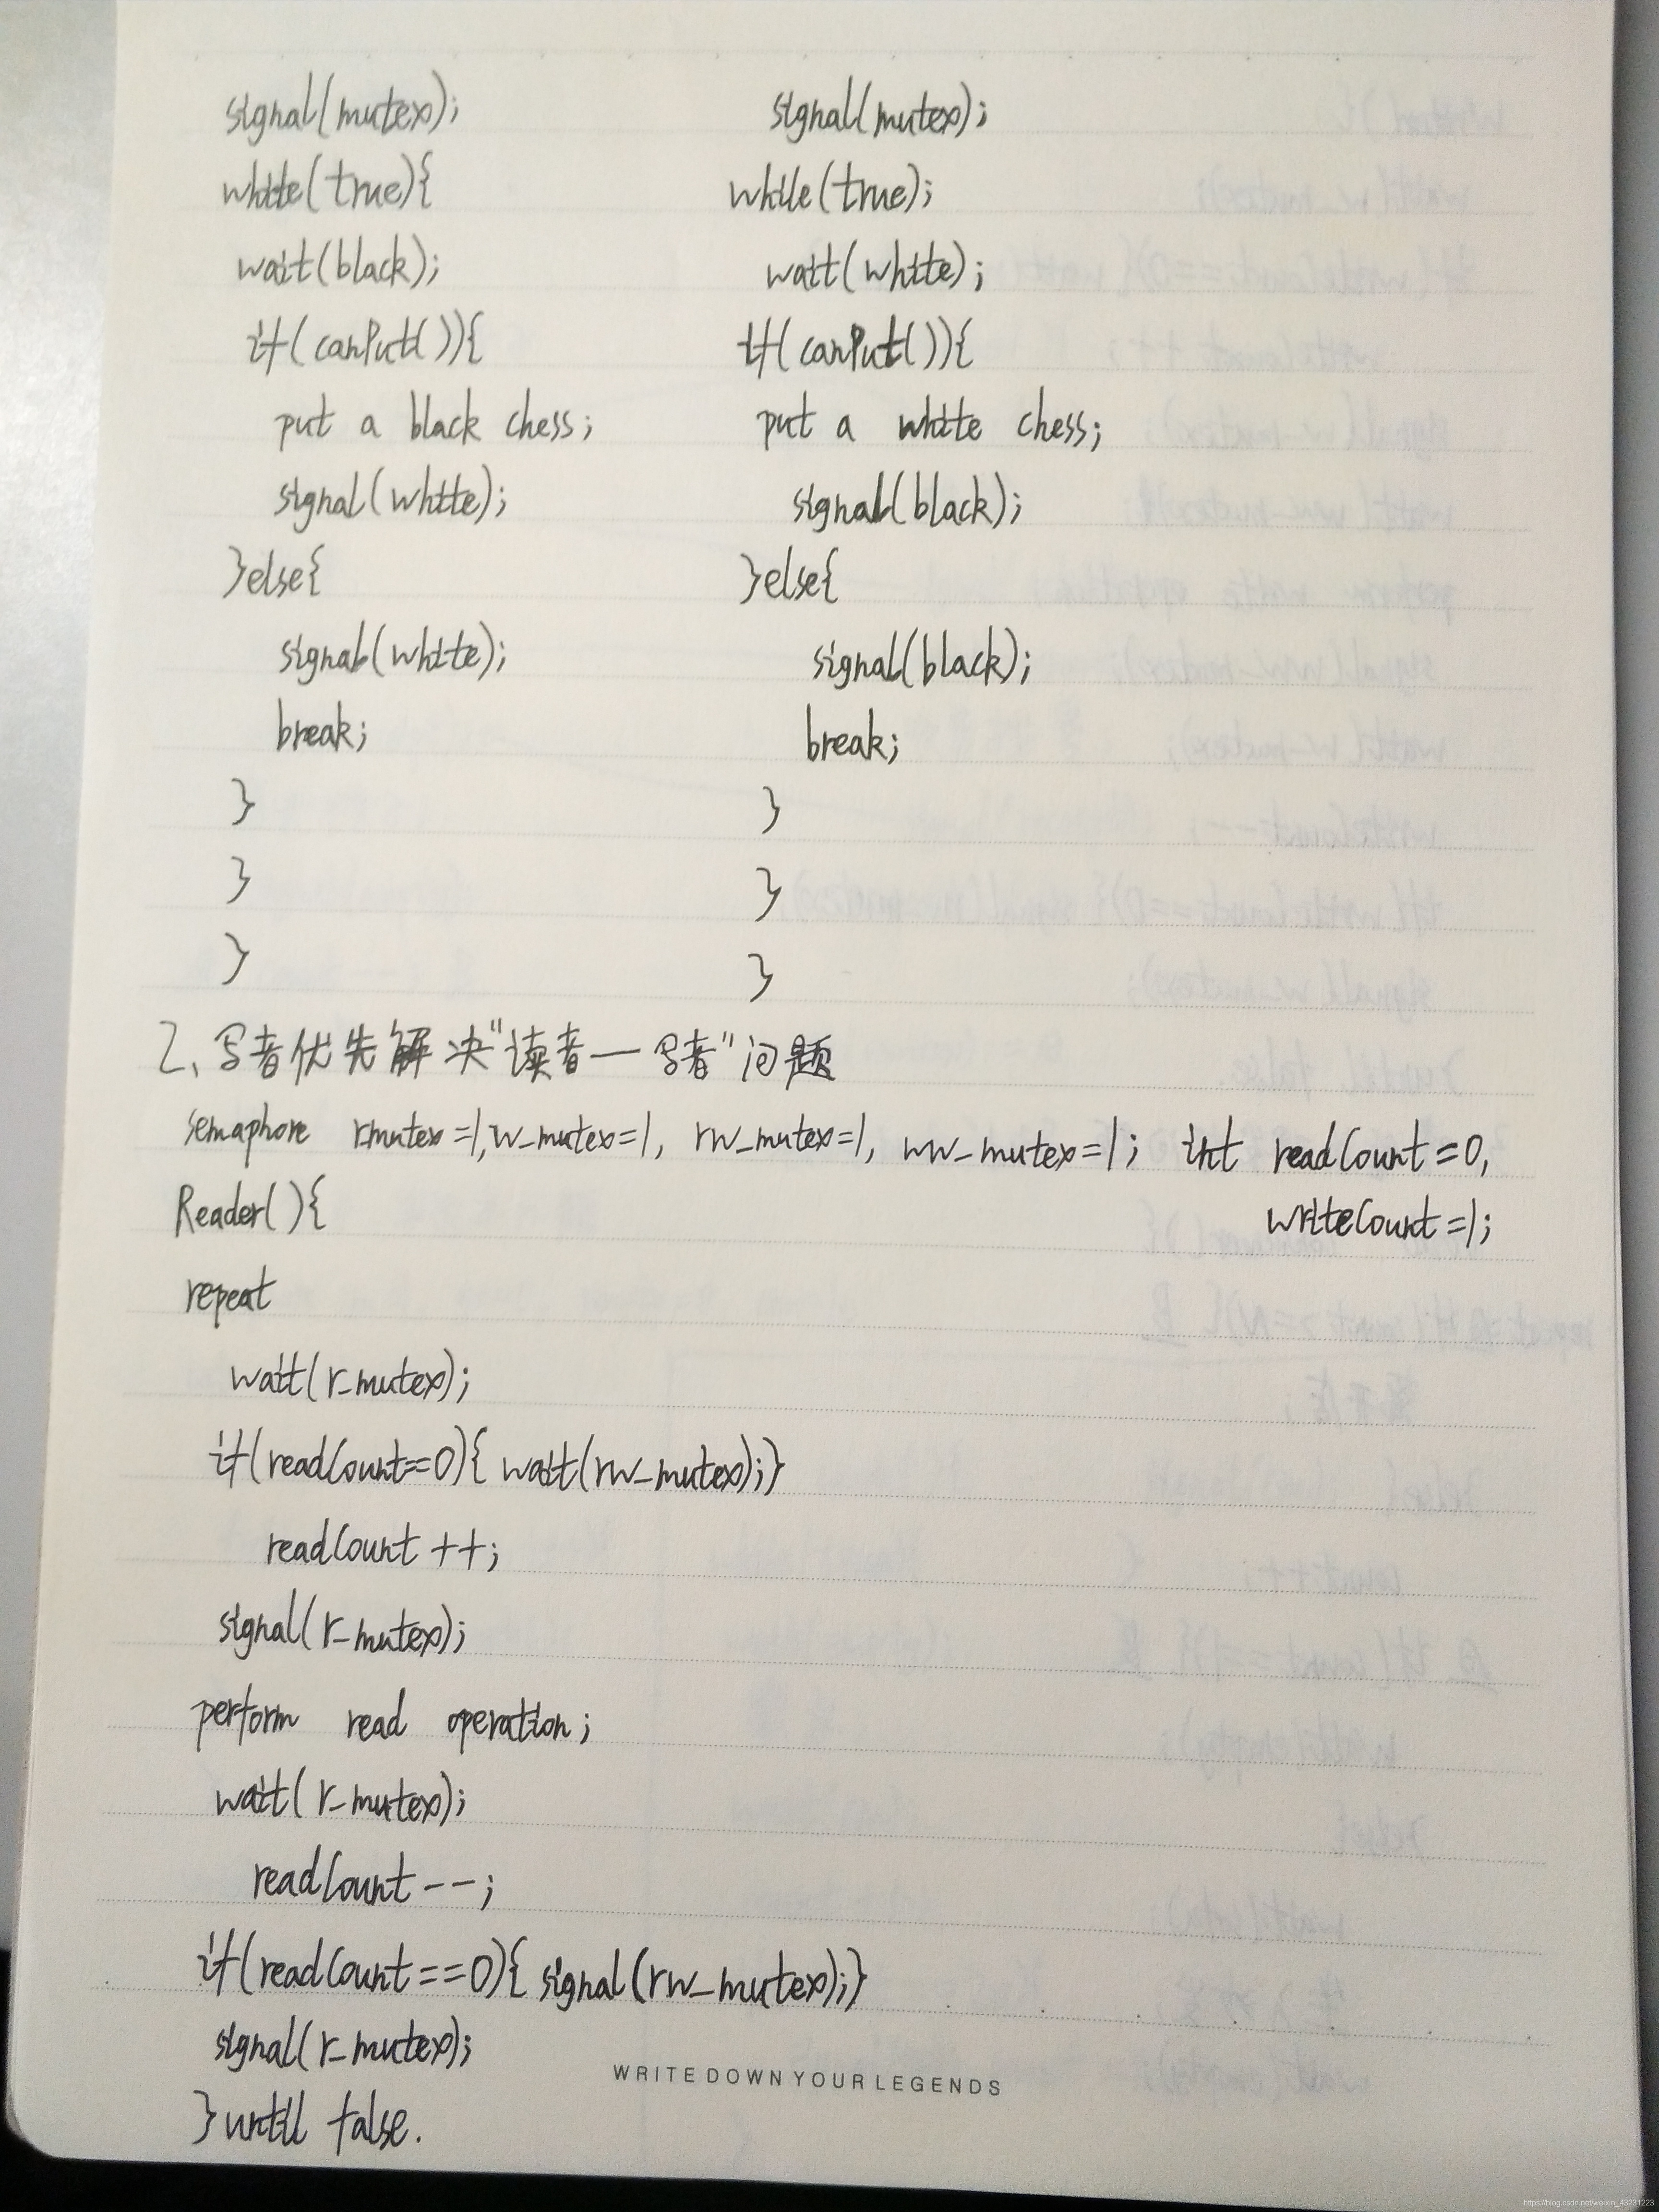 signal(mutex);
while(true){
wait(black);
if(canPut()){
put a black chess;
signal(white);
}else{
signal(white);
break;
}
}
}
signal(mutex);
while(true);
wait(white);
if(canPut()){
put a white chess;
signal(black);
}else{
signal(black);
break;
}
}
}
2、写者优先解决"读者—写者"问题
semaphore rmutex=1,w_mutex=1, rw_mutex=1, ww_mutex=1; int readCount=0,
writeCount=1;
Reader(){
repeat
wait(r_mutex);
if(readCount==0){ wait(rw_mutex);}
readCount ++;
signal(r_mutex);
perform read operation;
wait(r_mutex);
readCount --;
if(readCount==0){ signal(rw_mutex);}
signal(r_mutex);
}until false.
WRITE DOWN YOUR LEGENDS
https://blog.csdn.net/weixin_43231223